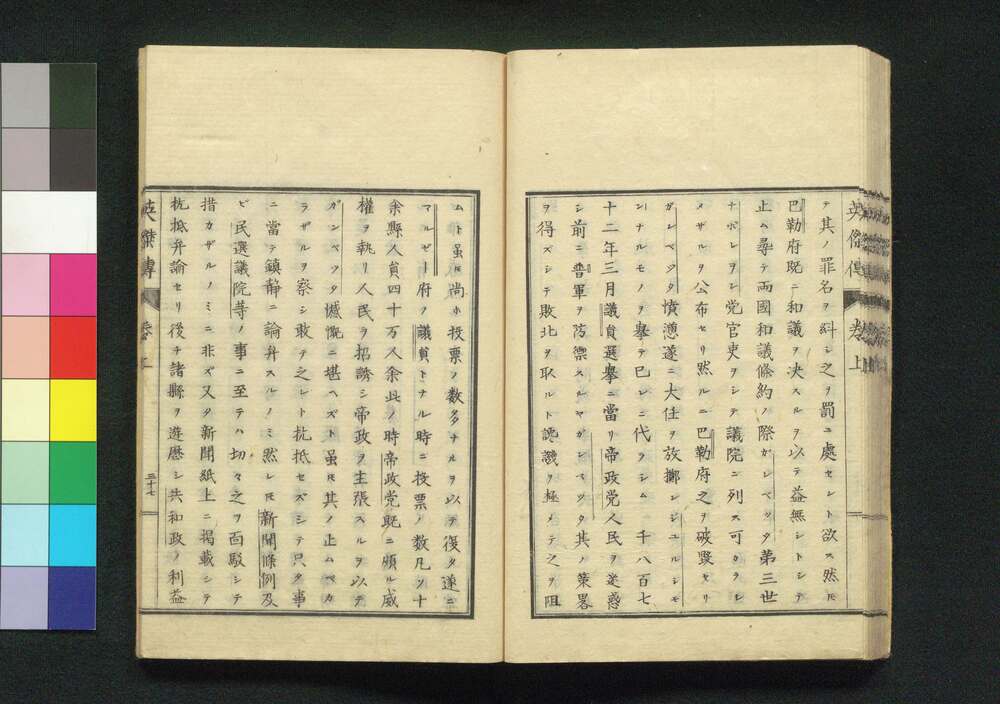 英傑傳 卷上
テ其ノ罪名ヲ糾シ之ヲ罰ニ處セント欲ス然ㇾ𪜈
巴勒府既ニ和議ヲ決スルヲ以テ益無シトシテ
止ム尋テ両國和議條約ノ際ガンベッタ第三世
ナポレヲンノ党官吏ヲシテ議院ニ列ス可カラ
メザルヲ公布セリ然ルニ巴勒府之ヲ破毀セリ
ガンベッタ憤懣遂ニ大任ヲ放擲シジュルシモ
ンナルモノヲ擧テ已レニ代ラシム 千八百七
十二年三月議員選擧ニ當リ帝政党人民ヲ迷惑
シ前ニ普軍ヲ防禦スルヤガンベッタ其ノ策畧
ヲ得ズシテ敗北ヲ取ルト讒譏ヲ極メテ之ヲ阻
ムト虽𪜈尚ホ投票ノ数多ナルヲ以テ復タ遂ニ
マルゼー府ノ議員トナル時ニ投票ノ数凡ソ十
余縣人員四十万人余此ノ時帝政党既ニ頗ル威
權ヲ執リ人民ヲ招誘シ帝政ヲ主張スルヲ以テ
ガンベッタ憾慨ニ堪ヘズト虽𪜈其ノ止ムベカ
ラザルヲ察シ敢テ之レト抗抵セズシテ只タ事
ニ當テ鎮静ニ論弁スルノミ然レ𪜈新聞條例及
ビ民選議院等ノ事ニ至テハ切々之ヲ面駁シテ
措カザルノミニ非ズ又タ新聞紙上ニ掲載シテ
抗抵弁論セリ後チ諸縣ヲ遊歴シ共和政ノ利益
英傑傳 卷上 三十七